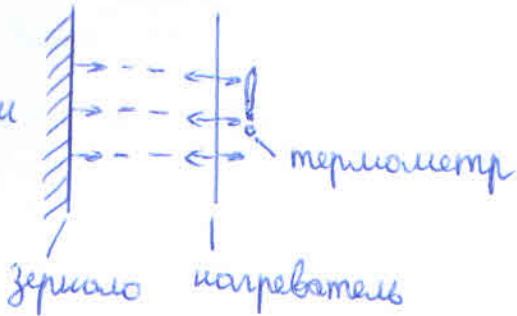 и
термометр
зеркало
нагреватель